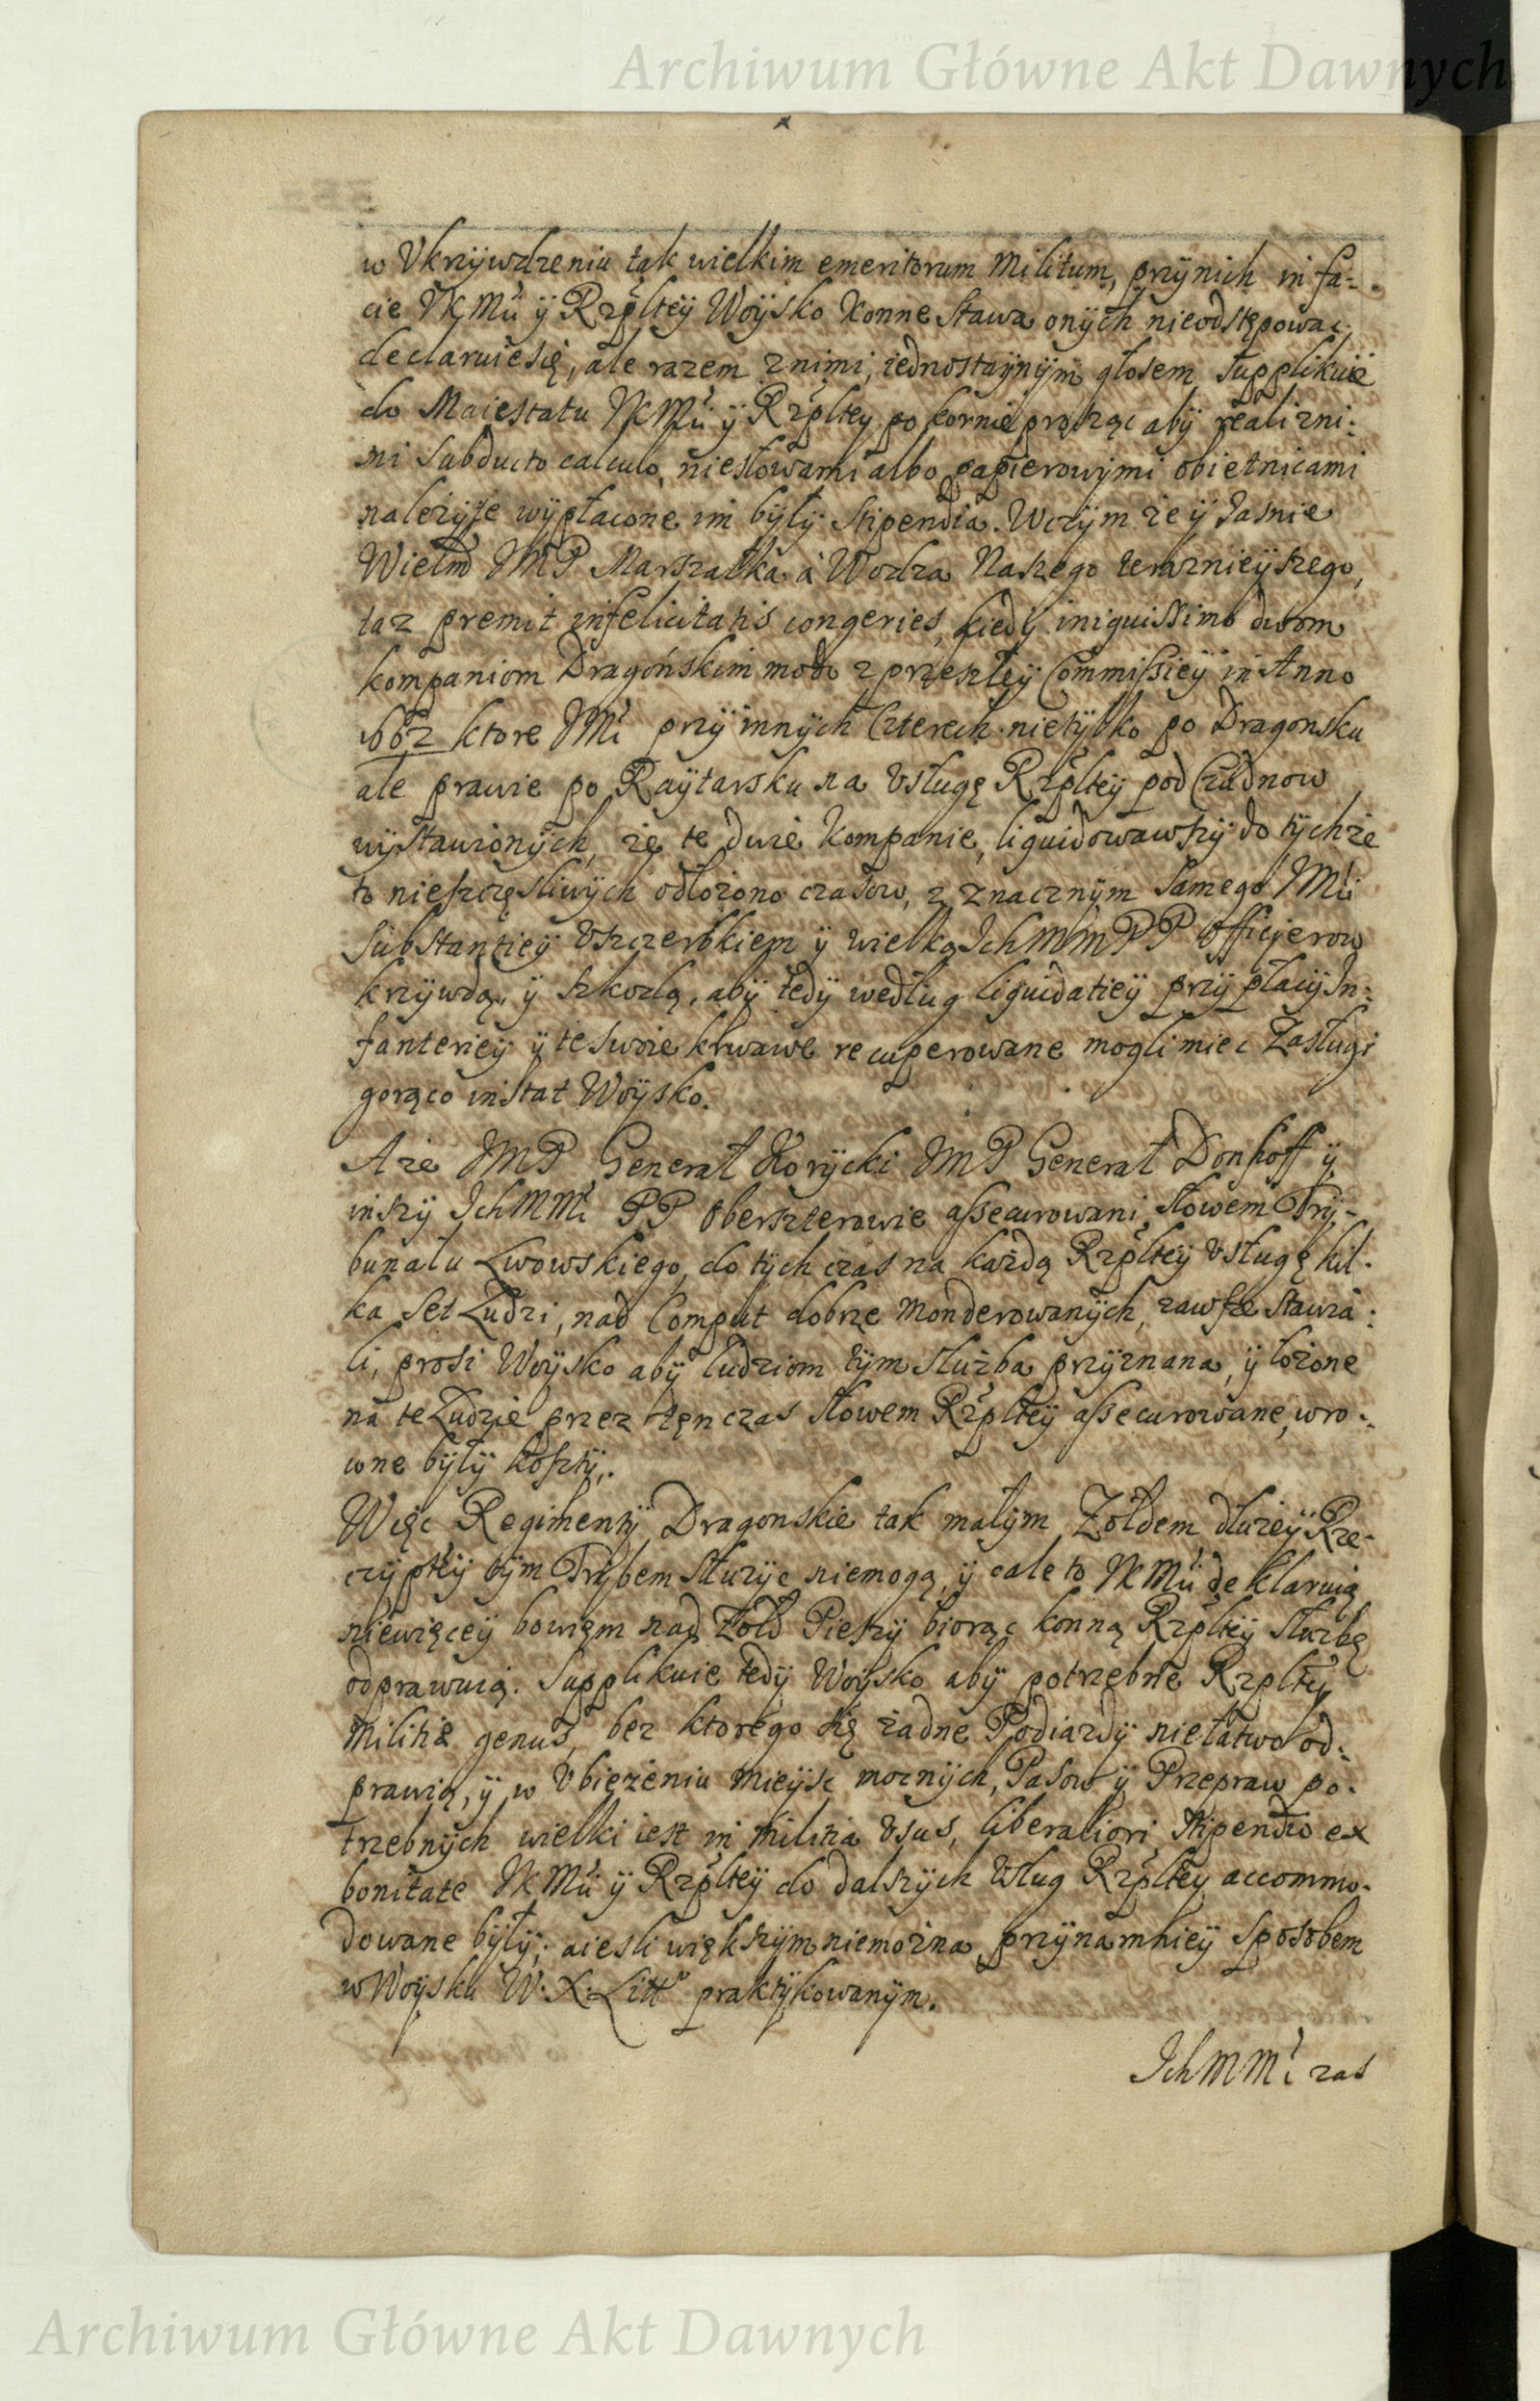 Archiwum Główne Akt Dawnych
w Vkrzywdzeniu tak wielkim emeritorum Militum, przy nich in fa=
cie WKMci ÿ Rzpltey Woysko Konne Stawa onych nieodstępować
declaruie się, ale razem z nimi, iednostaynym głosem supplikuie
do Maiestatu WKMci ÿ Rzpltey pokornie prosząc aby realizni:
mi subducto calculo, niesłowami albo papierowymi obietnicami
należyte wypłacone im były stipendia. Wczym że ÿ Jasnie
Wielm JMP Marszałka a Wodza Naszego teraznieyszego,
taz premit infelicitatis congeries, kiedy iniquissimo dwom
kompaniom Dragońskim modo z przeszłey Commissiey in Anno
1662 ktore JMć przy innych Czterech nietylko po Dragonsku
ale prawie po Raytarsku na Vsługę Rzpltey pod Cudnow
wystawionych, że te dwie Kompanie, liquidowawszy do tychże
to nieszczęsliwych odłożono czasow, z znacznym samego JMci
Substantiey Vszczerbkiem ÿ wielką Ich MM PP Officyerow
krzywdą, ÿ szkodą, aby tedy według liquidatiey przy płacy In:
fanteriey ÿ te swoie krwawe recuperowane mogli miec Zasługi
gorąco instat Woysko.
A że JMP Generał Korycki JMP Generał Donhoff ÿ
inszy Ich MMć PP Oberszterowie assecurowani, słowem Try-
bunału Lwowskiego, do tych czas na każdą Rzpltey Vsługę kil-
ka set Ludzi, nad Comput dobrze monderowanych, zawsze stawia:
li, prosi Woysko aby ludziom tym służba przyznana, ÿ łożone
na te Ludzie przez ten czas słowem Rzpltey assecurowane, wro-
cone były koszty.
Więc Regimenty Dragonskie tak małym Zołdem dłużey Rze-
czyptey tym Trybem służyc niemogą, ÿ cale to WKMci deklaruią
niewięcey bowiem nad Zołd Pieszy biorąc konną Rzpltey służbę
odprawuią. Supplikuie tedy Woysko aby potrzebne Rzpltey
militiæ genus, bez ktorego się żadne Podiazdy niełatwo od:
prawią, ÿ w Vbieżeniu mieysc mocnych, Pasow ÿ Przepraw po-
trzebnych wielki iest in militia Vsus, liberaliori stipendio ex
bonitate WKMci ÿ Rzpltey do dalszych Vsług Rzpltey accommo-
dowane były; aiesli większym niemożna, przynamniey sposobem
w Woysku W. X. Litt° praktykowanym.
Ich MMć zas
Archiwum Główne Akt Dawnych